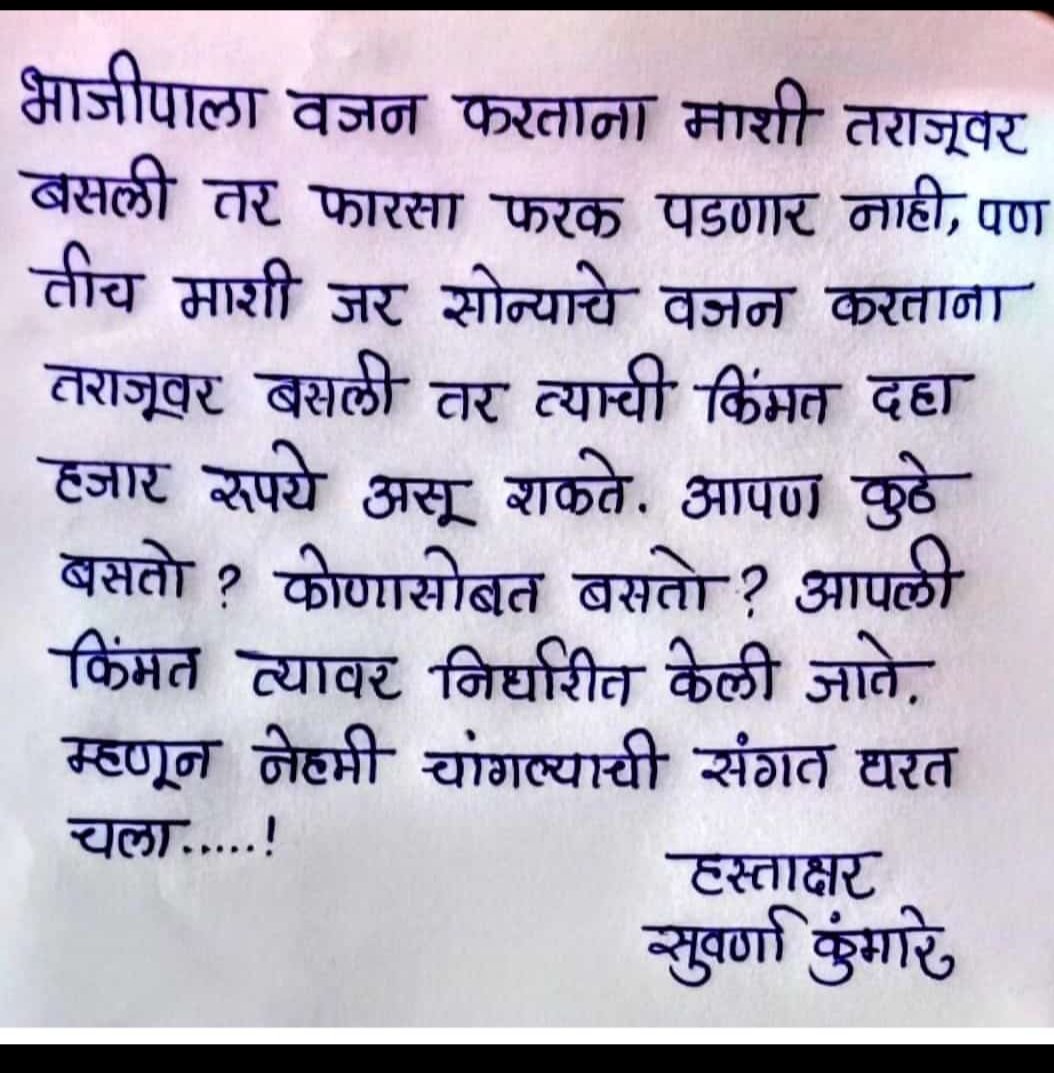 भाजीपाला वजन करताना माशी तराजूवर
बसली तर फारसा फरक पडणार नाही, पण
तीच माशी जर सोन्याचे वजन करताना
तराजूवर बसली तर त्याची किंमत दहा
हजार रुपये असू शकते. आपण कुठे
बसतो ? कोणासोबत बसतो ? आपली
किंमत त्यावर निर्धारीत केली जाते.
म्हणून नेहमी चांगल्याची संगत धरत
चला.....!
हस्ताक्षर
सुवर्णा कुंमारे